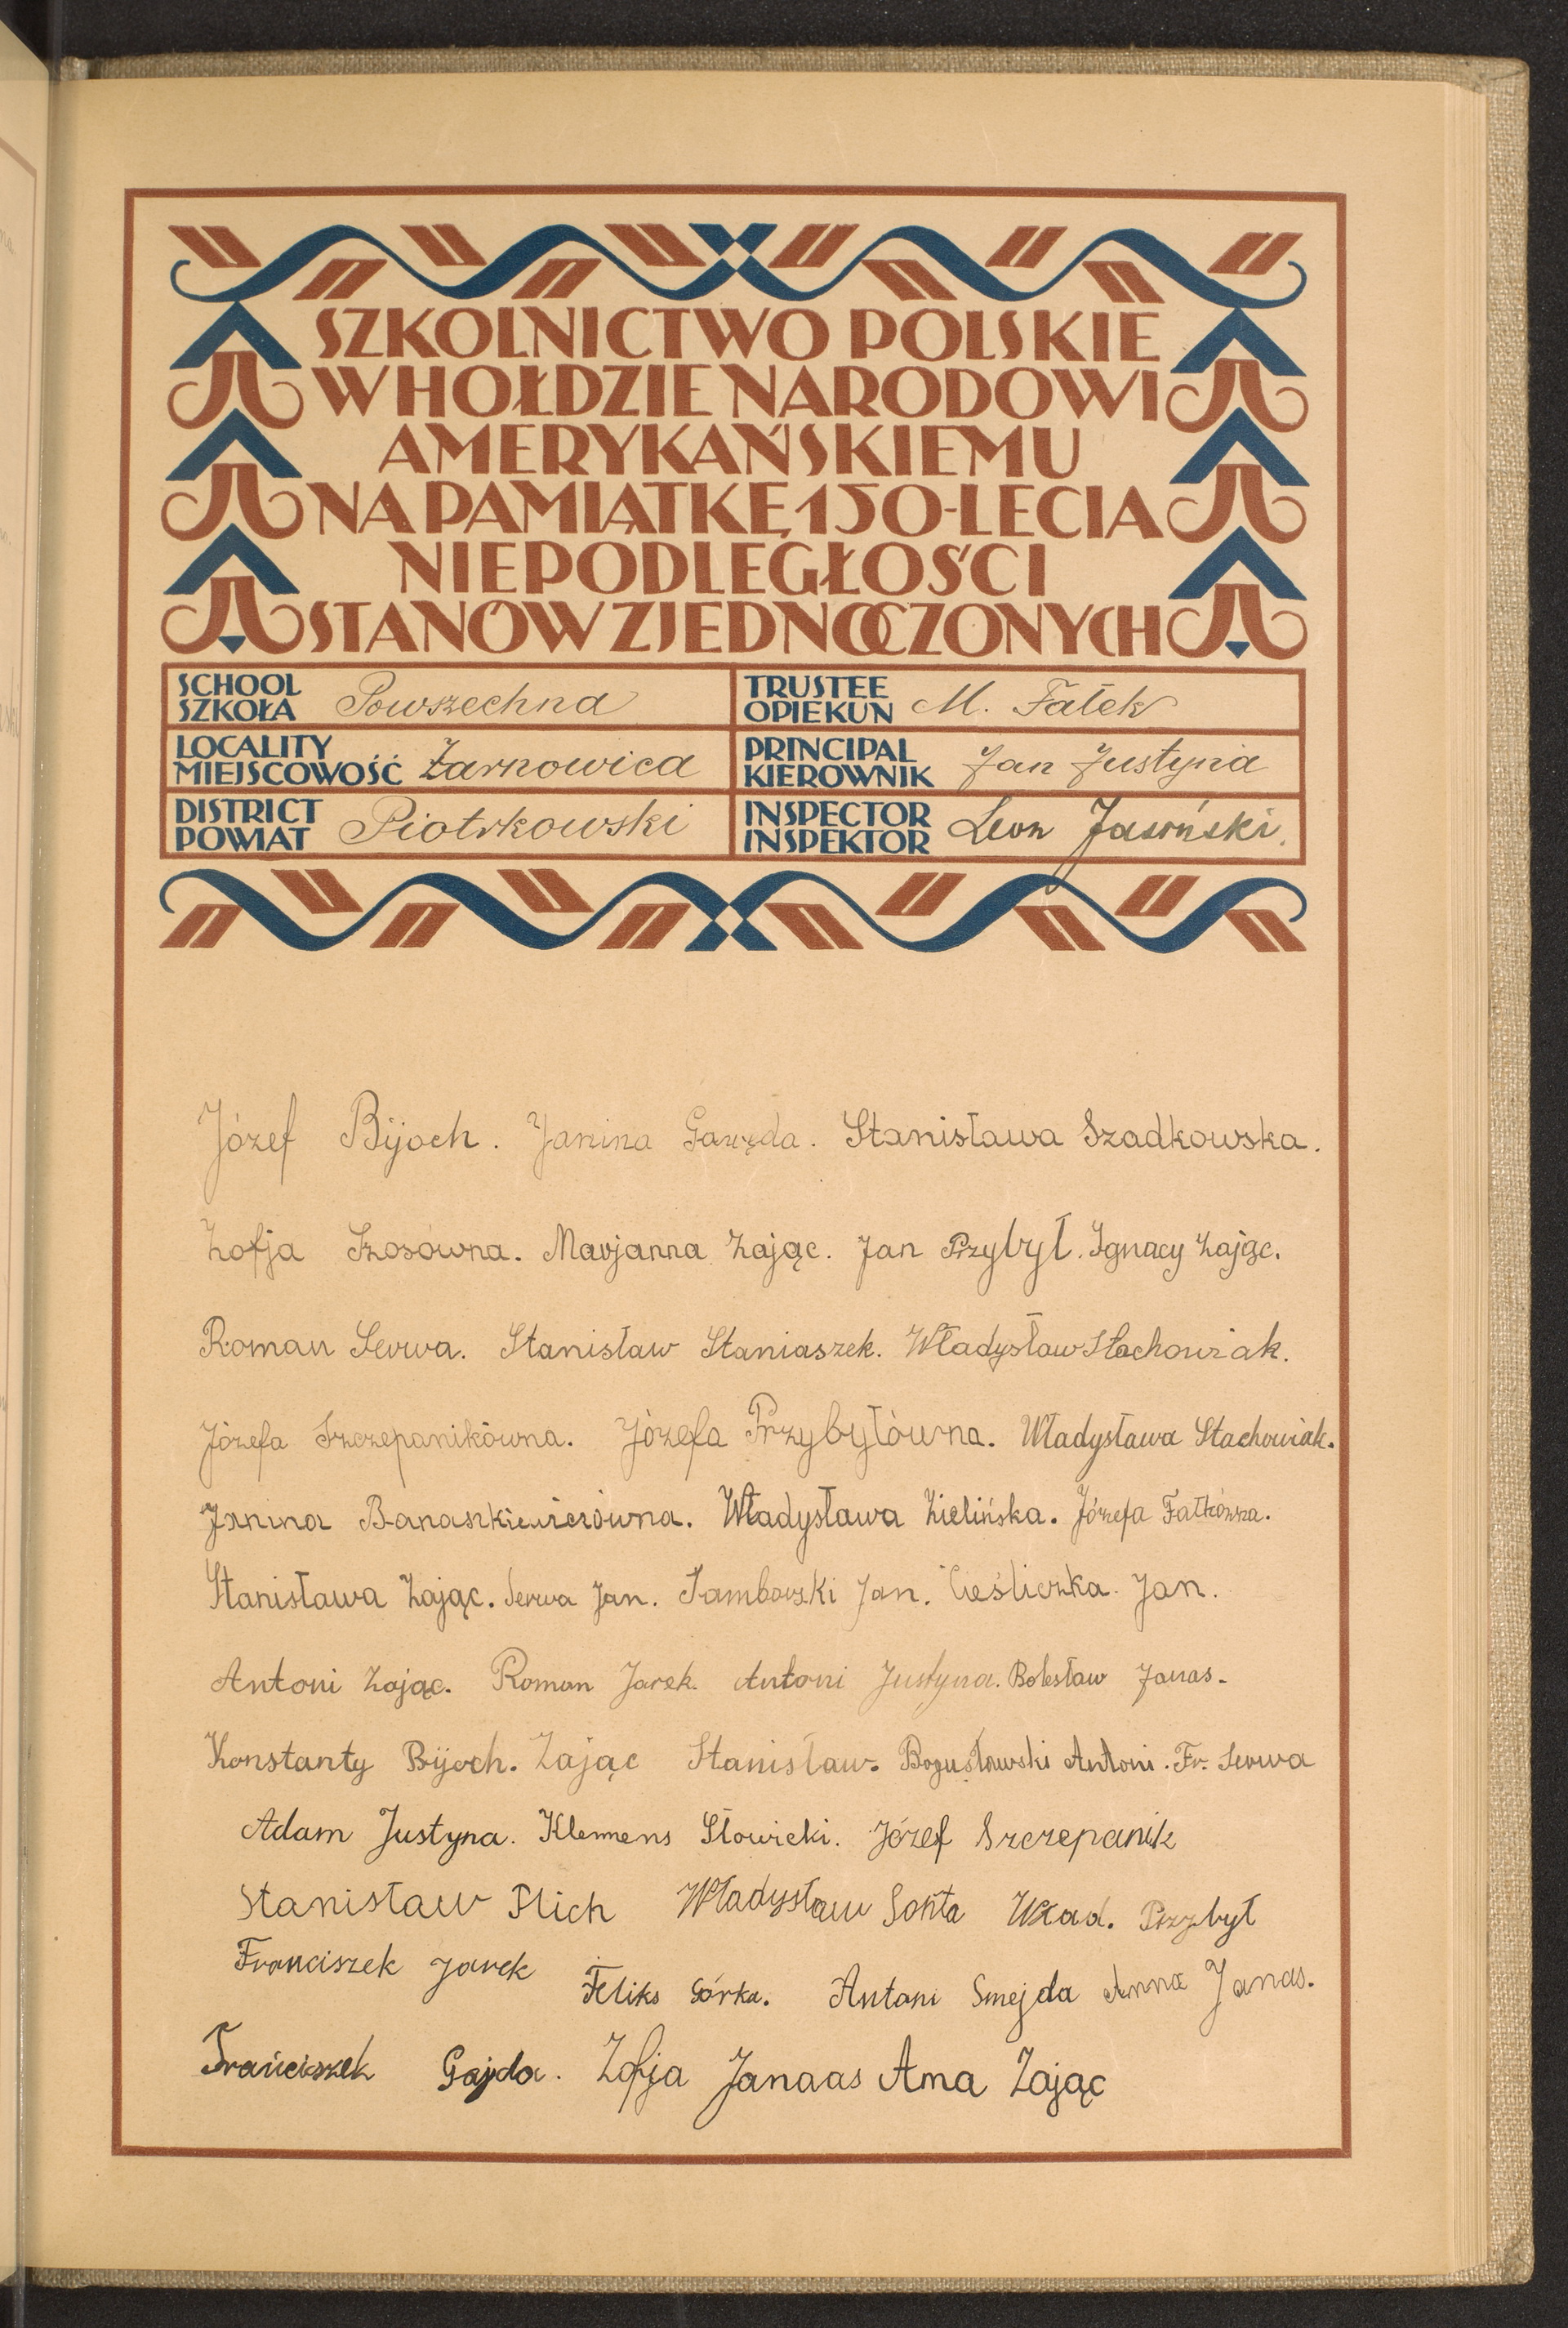 SZKOLNICTWO POLSKIE
W HOŁDZIE NARODOWI
AMERYKAŃSKIEMU
NA PAMIĄTKĘ 150-LECIA
NIEPODLEGŁOŚCI
STANÓW ZJEDNOCZONYCH
SCHOOL SZKOŁA Powszechna TRUSTEE OPIEKUN M. Fałek
LOCALITY MIEJSCOWOŚĆ Żarnowica PRINCIPAL KIEROWNIK Jan Justyna
DISTRICT POWIAT Piotrkowski INSPECTOR INSPEKTOR Leon Jasiński.
Józef Bijoch. Janina Gawęda. Stanisława Szadkowska.
Zofja Szosówna. Marjanna Zając. Jan Przybył. Ignacy Zając.
Roman Serwa. Stanisław Staniaszek. Władysław Stachowiak.
Józefa Szczepanikówna. Józefa Przybyłówna. Władysława Stachowiak.
Janina Banaszkiewiczówna. Władysława Zielińska. Józefa Fałkówna.
Stanisława Zając. Serwa Jan. Samborski Jan. Cieśliczka Jan.
Antoni Zając. Roman Jarek. Antoni Justyna. Bolesław Janas.
Konstanty Bijoch. Zając Stanisław. Bogusławski Antoni. Fr. Serwa
Adam Justyna. Klemens Słowicki. Józef Szczepanik
Stanisław Flich Władysław Sońta Wład. Przybył
Franciszek Jarek Feliks Górka. Antoni Smejda Anna Janas.
Franciszek Gajda. Zofja Janaas Ama Zając